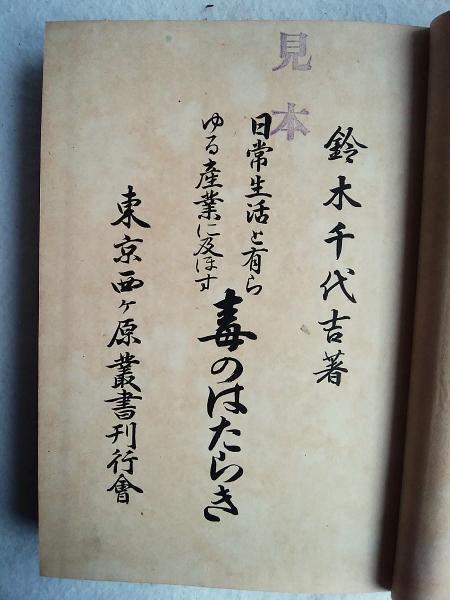 見本
鈴木千代吉著
日常生活と有ら
ゆる産業に及ほす
毒のはたらき
東京西ヶ原叢書刊行會